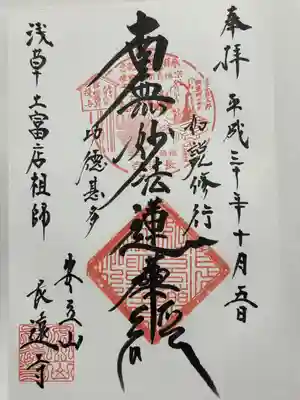 奉拝
平成三十年十月五日
如説修行
南無妙法蓮華経
功徳甚多
浅草土富店祖師
安立山
長遠寺